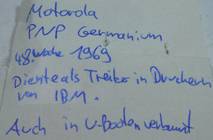 Motorola
PNP Germanium
48. Woche 1969
Diente als Treiber in Druckern
von IBM.
Auch in U-Booten verbaut